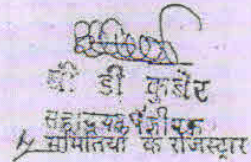 बी डी कुबैर
सहायक पंजीयक
समितियां के रजिस्ट्रार